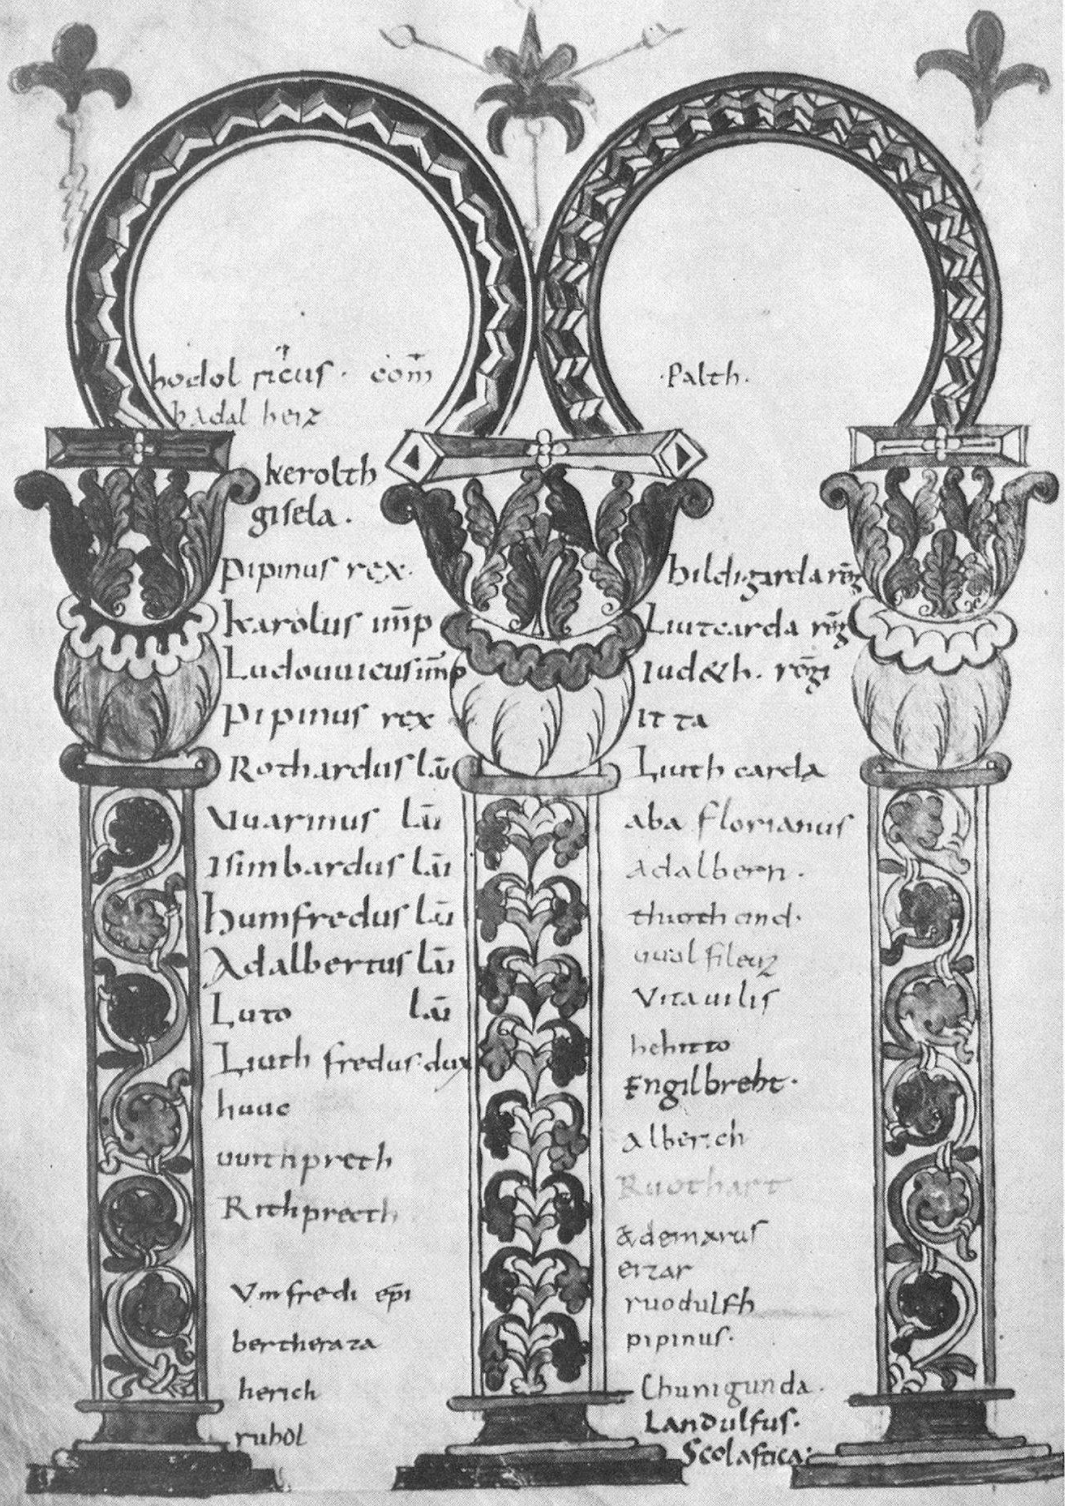 hodolricus · com̅
hadalherz
kerolth
gisela .
pipinus rex.
karolus im̅p
Ludouuicus im̅p
pipinus rex
Rothardus lāi
Vuarinus lāi
Isimbardus lāi
humfredus lāi
Adalbertus lāi
Luto lāi
Liuthfredus · dux
huuc
uuithpreth
Rithprecth
Vmfredi ep̅i
bertherata
herich
ruhol
· Palth .
hildigarda reg̅
Liutcarda reg̅
Iud&h . reg̅i
itta
Liuthcarda
aba florianus
Adalbern .
thiothcind .
Vitauilis
hehitto
Engilbreht .
alberich
Ruothart
&demarus
erzar
ruodulfh
pipinus .
Chunigunda .
Landulfus .
Scolastica :